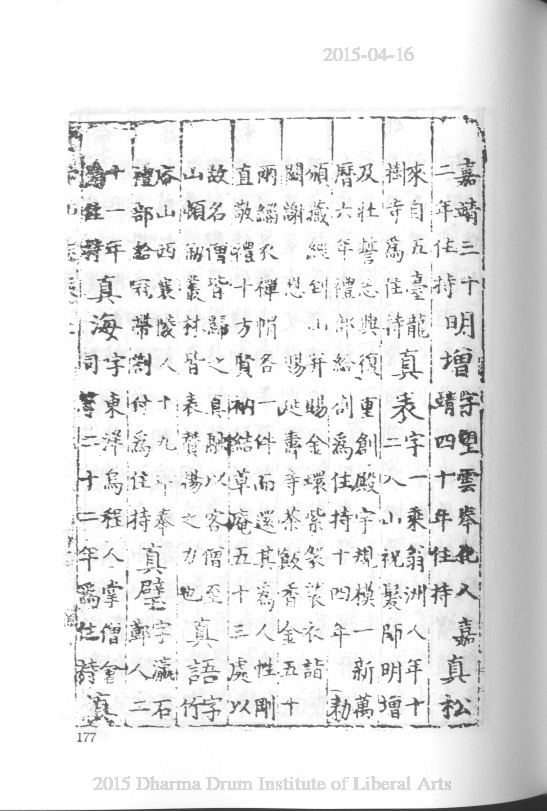 嘉靖三十
二年住持
明增
字望雲奉化人嘉
靖四十年住持
真松
來自五臺龍
樹寺為住持
真表
字一乘翁洲人年十
二入山祝髮師明增
及壯誓志興復重創殿宇規模一新萬
曆六年禮部給劄為住持十四年 勅
頒藏經到山并賜金環紫袈裟衣詣
闕謝 恩 賜延壽寺茶飯香金五十
兩緇衣禪帽各一件而還其為人性剛
直敬禮十方賢衲結草庵五十三處以
故名僧皆歸之真融以客僧至
山頓叢林皆表贊揚之力也
真語
字
竹
峯山西襄陵人十九年奉
禮部給冠帶劄付為住持
真璧
字瀛石
鄞人二
十一年
為住持
真海
字東洋烏程人掌僧會
司篆二十二年為住持
寰
177
2015-04-16
2015 Dharma Drum Institute of Liberal Arts